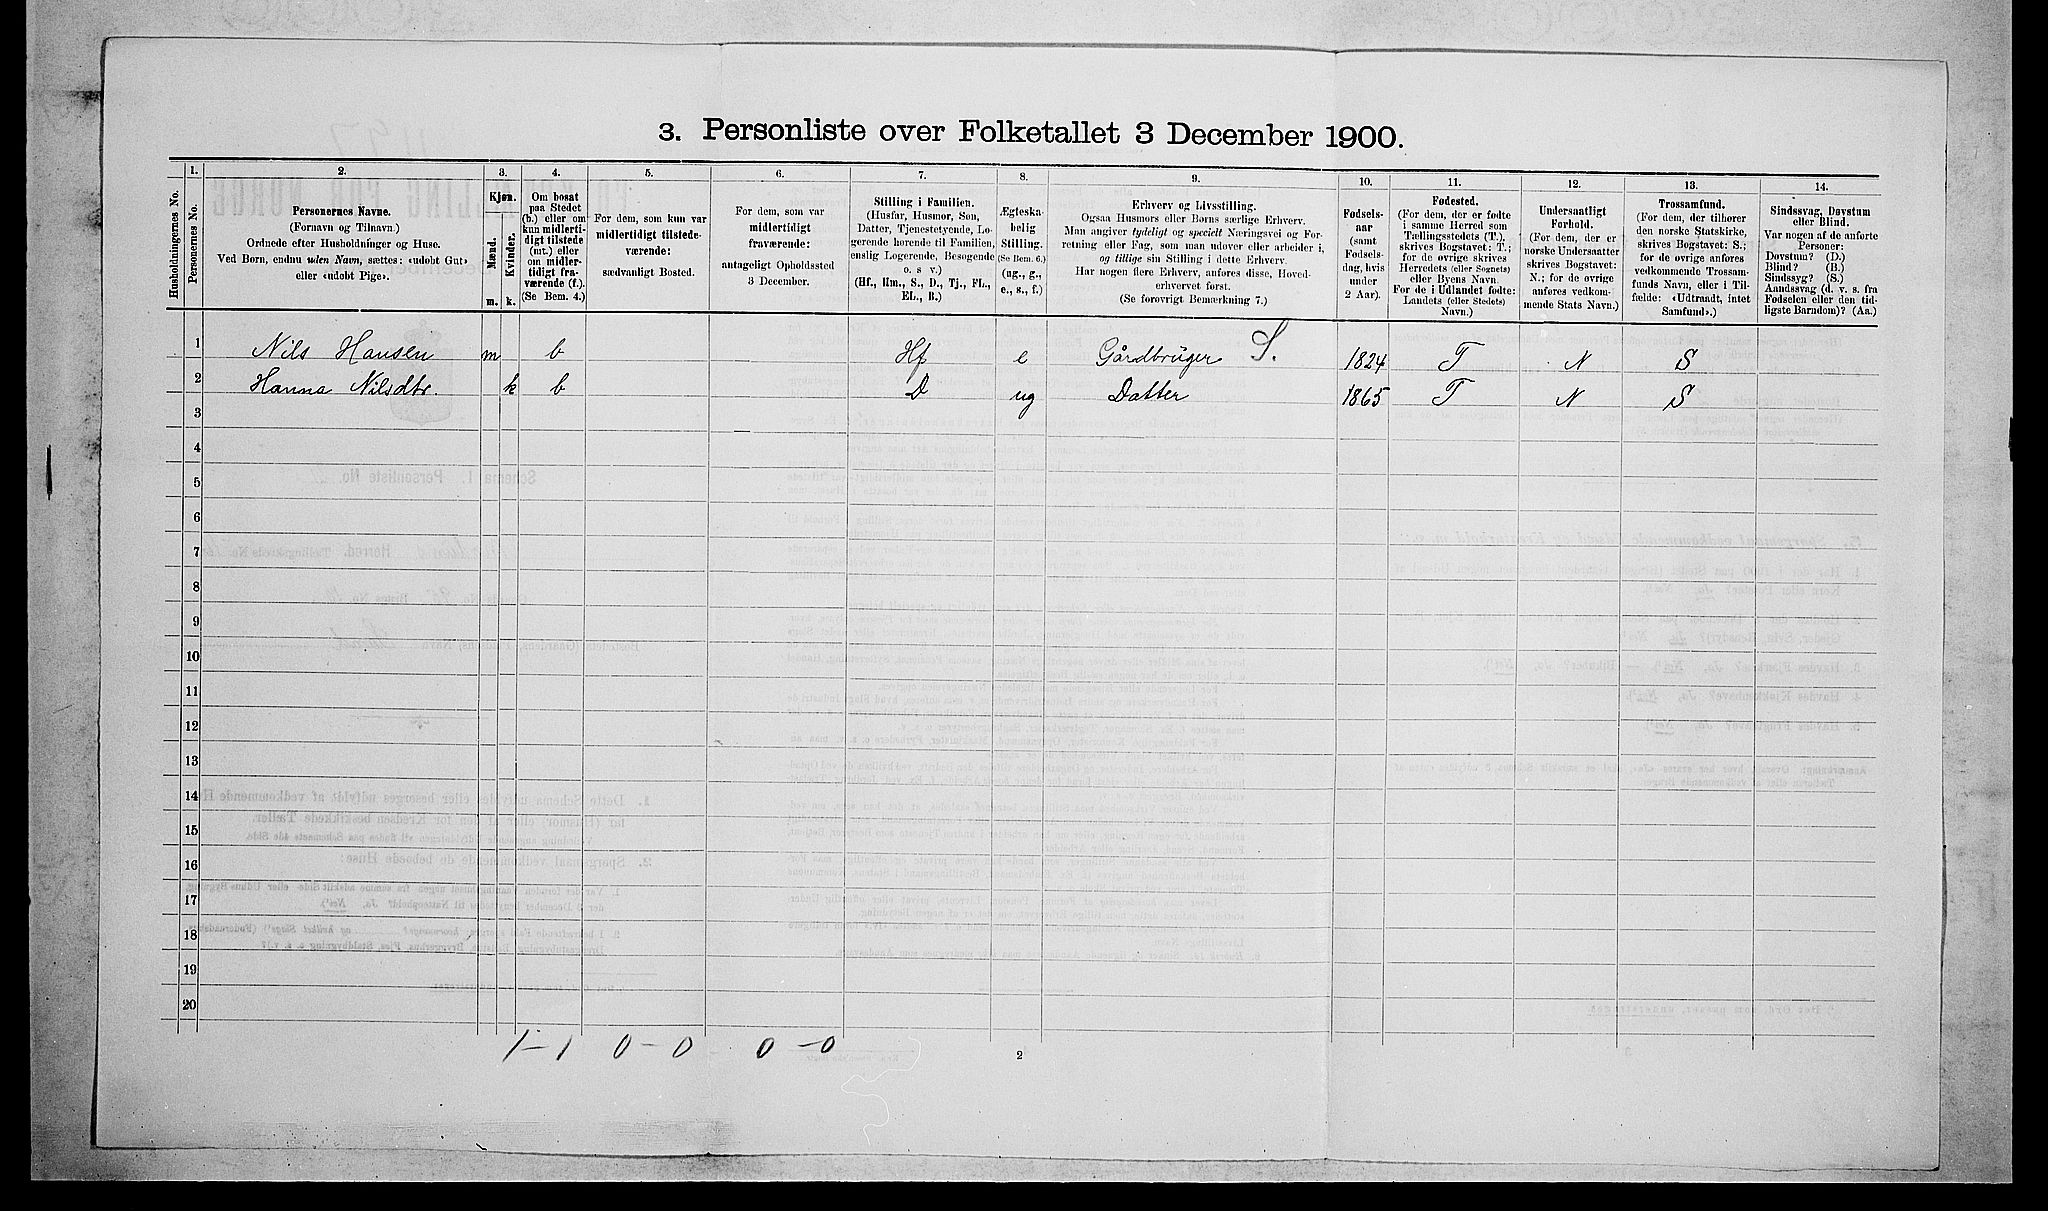 3. Personliste over Folketallet 3 December 1900.
1. 2. 3. 4. 5. 6. 7. 8. 9. 10. 11. 12. 13. 14.
Husholdningernes No.
Personernes No.
Personernes Navne.
(Fornavn og Tilnavn.)
Ordnede efter Husholdninger og Huse.
Ved Børn, endnu uden Navn, sættes: «udøbt Gut»
eller «udøbt Pige».
Kjøn.
Mænd.
Kvinder.
m. k.
Om bosat
paa Stedet
(b.) eller om
kun midlerti-
digt tilstede
(mt.) eller
om midler-
tidigt fra-
værende (f.).
(Se Bem. 4.)
For dem, som kun var
midlertidigt tilstede-
værende:
sædvanligt Bosted.
For dem, som var
midlertidigt
fraværende:
antageligt Opholdssted
3 December.
Stilling i Familien.
(Husfar, Husmor, Søn,
Datter, Tjenestetyende, Lo-
gerende hørende til Familien,
enslig Logerende, Besøgende
o. s v.)
(Hf., Hm., S., D., Tj., FL.,
EL., B.)
Ægteska-
belig
Stilling.
(Se Bem. 6.)
(ug., g.,
e., s., f.)
Erhverv og Livsstilling.
Ogsaa Husmors eller Børns særlige Erhverv.
Man angiver tydeligt og specielt Næringsvei og For-
retning eller Fag, som man udøver eller arbeider i,
og tillige sin Stilling i dette Erhverv.
Har nogen flere Erhverv, anføres disse, Hoved-
erhvervet først.
(Se forøvrigt Bemærkning 7.)
Fødsels-
aar
(samt
Fødsels-
dag, hvis
under
2 Aar).
Fødested.
(For dem, der er fødte
i samme Herred som
Tællingsstedets (T.),
skrives Bogstavet: T.;
for de øvrige skrives
Herredets (eller Sognets)
eller Byens Navn.
For de i Udlandet fødte:
Landets (eller Stedets)
Navn.)
Undersaatligt
Forhold.
(For dem, der er
norske Undersaatter
skrives Bogstavet:
N.; for de øvrige
anføres vedkom-
mende Stats Navn.)
Trossamfund.
(For dem, der tilhører
den norske Statskirke,
skrives Bogstavet: S.;
for de øvrige anføres
vedkommende Trossam-
funds Navn, eller i Til-
fælde: «Udtraadt, intet
Samfund».)
Sindssvag, Døvstum
eller Blind.
Var nogen af de anførte
Personer:
Døvstum? (D.)
Blind? (B.)
Sindssyg? (S.)
Aandssvag (d. v. s. fra
Fødselen eller den tid-
ligste Barndom)? (Aa.)
1 Nils Hansen m b Hf e Gårdbrüger S. 1824 T N S
2 Hanna Nilsdtr. k b D ug Datter 1865 T N S
3
4
5
6
7
8
9
10
11
12
13
14
15
16
17
18
19
20
1-1 0-0 0-0
2